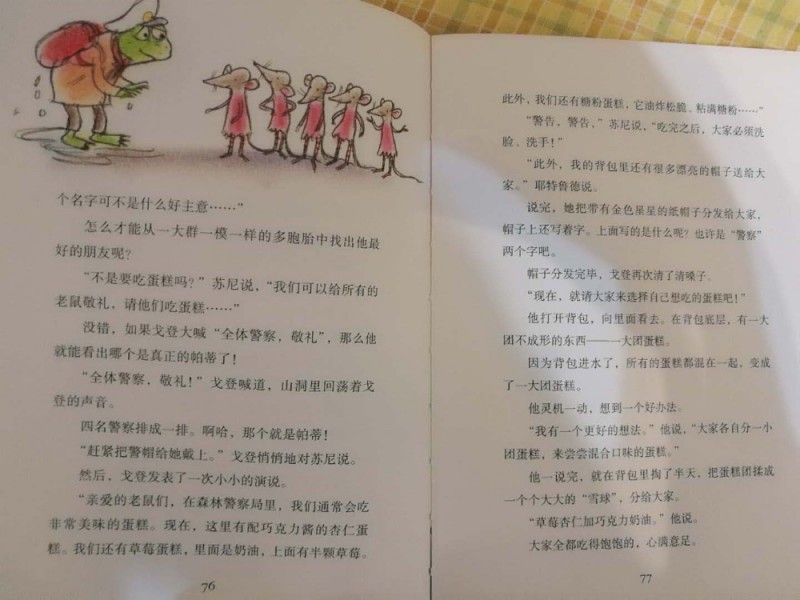 个名字可不是什么好主意……”
怎么才能从一大群一模一样的多胞胎中找出他最
好的朋友呢？
“不是要吃蛋糕吗？”苏尼说，“我们可以给所有的
老鼠敬礼，请他们吃蛋糕……”
没错，如果戈登大喊“全体警察，敬礼”，那么他
就能看出哪个是真正的帕蒂了！
“全体警察，敬礼！”戈登喊道，山洞里回荡着戈
登的声音。
四名警察排成一排。啊哈，那个就是帕蒂！
“赶紧把警帽给她戴上。”戈登悄悄地对苏尼说。
然后，戈登发表了一次小小的演说。
“亲爱的老鼠们，在森林警察局里，我们通常会吃
非常美味的蛋糕。现在，这里有配巧克力酱的杏仁蛋
糕。我们还有草莓蛋糕，里面是奶油，上面有半颗草莓。
76
此外，我们还有糖粉蛋糕，它油炸松脆、粘满糖粉……”
“警告，警告，”苏尼说，“吃完之后，大家必须洗
脸、洗手！”
“此外，我的背包里还有很多漂亮的帽子送给大
家。”耶特鲁德说。
说完，她把带有金色星星的纸帽子分发给大家，
帽子上还写着字。上面写的是什么呢？也许是“警察”
两个字吧。
帽子分发完毕，戈登再次清了清嗓子。
“现在，就请大家来选择自己想吃的蛋糕吧！”
他打开背包，向里面看去。在背包底层，有一大
团不成形的东西——一大团蛋糕。
因为背包进水了，所有的蛋糕都混在一起，变成
了一大团蛋糕。
他灵机一动，想到一个好办法。
“我有一个更好的想法。”他说，“大家各自分一小
团蛋糕，来尝尝混合口味的蛋糕。”
他一说完，就在背包里掏了半天，把蛋糕团揉成
一个个大大的“雪球”，分给大家。
“草莓杏仁加巧克力奶油。”他说。
大家全都吃得饱饱的，心满意足。
77